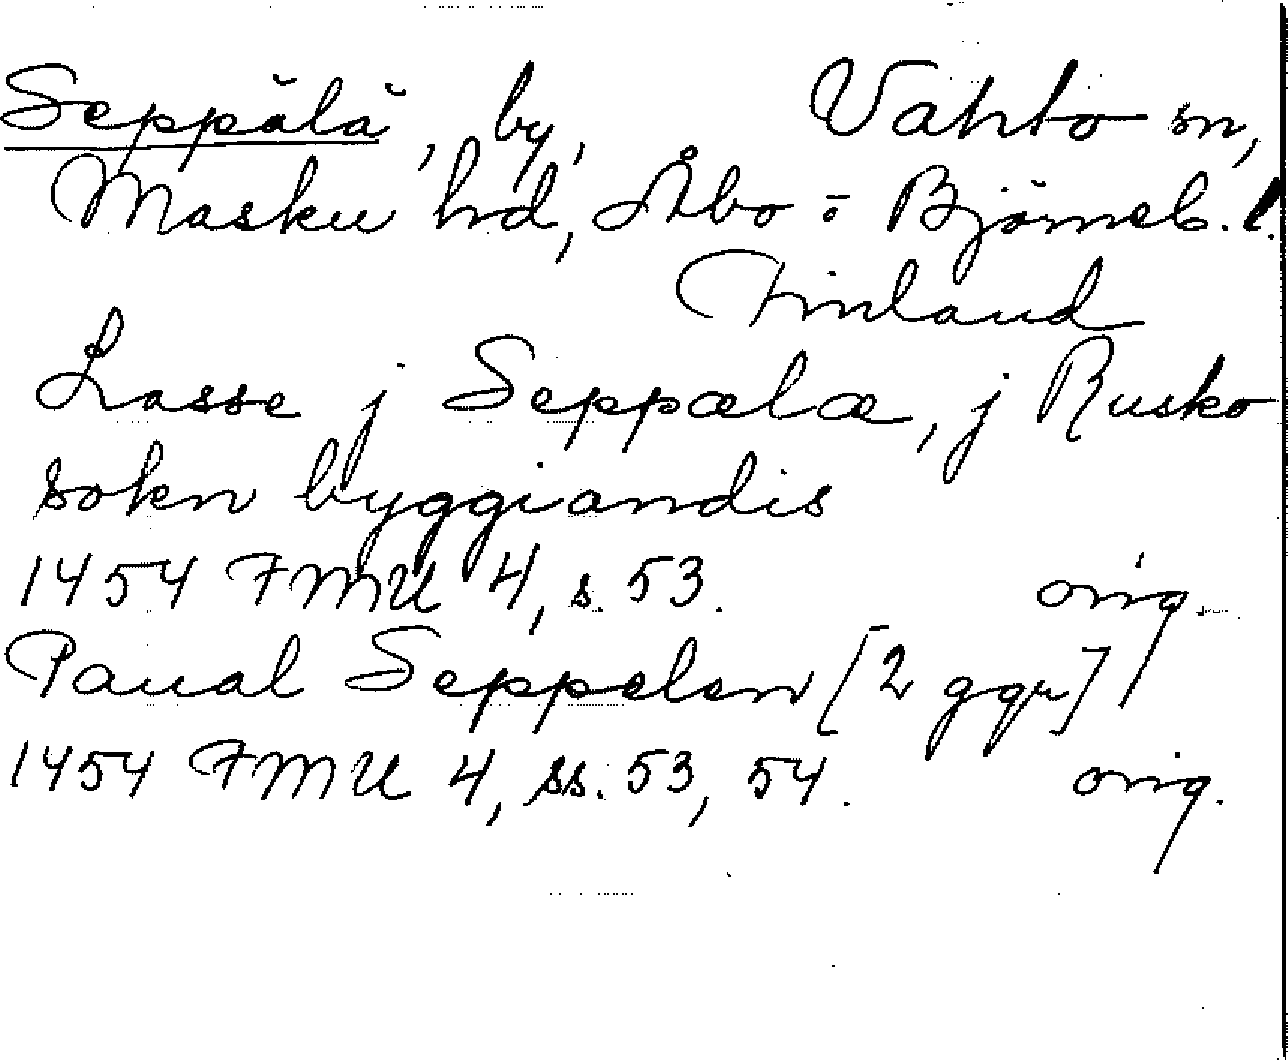 Seppälä, by, Vahto sn,
Masku hd, Åbo o Björneb. l.
Finland
Lasse j Seppælæ, j Rusko
sokn byggiandis
1454 FMU 4, s. 53. orig.
Paual Seppelen [2 ggr]
1454 FMU 4, ss. 53, 54. orig.